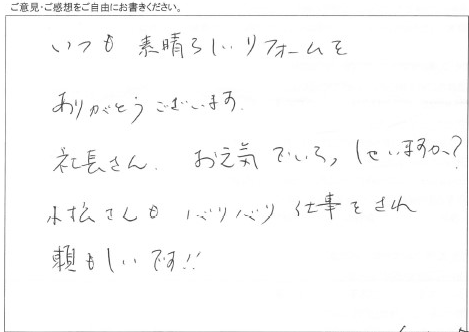 ご意見・ご感想をご自由にお書きください。
いつも 素晴らしいリフォームを
ありがとうございます.
社長さん. お元気でいらっしゃいますか?
小松さんも バリバリ 仕事をされ
頼もしいです!!